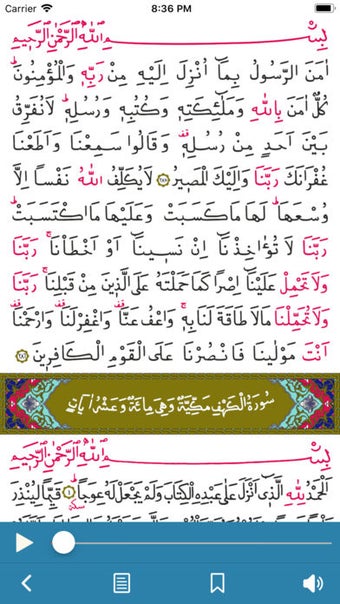 Carrier 8:36 PM
بِسْــــمِ اللّٰهِ الرَّحْمٰنِ الرَّحِيمِ
اٰمَنَ الرَّسُولُ بِمَٓا اُنْزِلَ اِلَيْهِ مِنْ رَبِّهٖ وَالْمُؤْمِنُونَۜ
كُلٌّ اٰمَنَ بِاللّٰهِ وَمَلٰٓئِكَتِهٖ وَكُتُبِهٖ وَرُسُلِهٖۜ لَانُفَرِّقُ
بَيْنَ اَحَدٍ مِنْ رُسُلِهٖۚ وَقَالُوا سَمِعْنَا وَاَطَعْنَا
غُفْرَانَكَ رَبَّنَا وَاِلَيْكَ الْمَصِيرُ ﴿٢٨٥﴾ لَايُكَلِّفُ اللّٰهُ نَفْساً اِلَّا
وُسْعَهَاۜ لَهَا مَاكَسَبَتْ وَعَلَيْهَا مَااكْتَسَبَتْۜ
رَبَّنَا لَا تُؤَاخِذْنَٓا اِنْ نَسٖينَٓا اَوْ اَخْطَأْنَاۚ رَبَّنَا
وَلَاتَحْمِلْ عَلَيْنَٓا اِصْراً كَمَا حَمَلْتَهُ عَلَى الَّذٖينَ مِنْ قَبْلِنَاۚ رَبَّنَا
وَلَاتُحَمِّلْنَا مَالَا طَاقَةَ لَنَابِهٖۚ وَاعْفُ عَنَّا۠ وَاغْفِرْلَنَا۠ وَارْحَمْنَا۠
اَنْتَ مَوْلٰينَا فَانْصُرْنَا عَلَى الْقَوْمِ الْكَافِرٖينَ ﴿٢٨٦﴾
سُورَةُ الْكَهْفِ مَكِّيَّةٌ وَهِيَ مِائَةٌ وَعَشْرُ اٰيَاتٍ
بِسْــــمِ اللّٰهِ الرَّحْمٰنِ الرَّحِيمِ
اَلْحَمْدُ لِلّٰهِ الَّذٖٓى اَنْزَلَ عَلٰى عَبْدِهِ الْكِتَابَ وَلَمْ يَجْعَلْ لَهُ عِوَجاً ﴿١﴾ قَيِّماً لِيُنْذِرَ